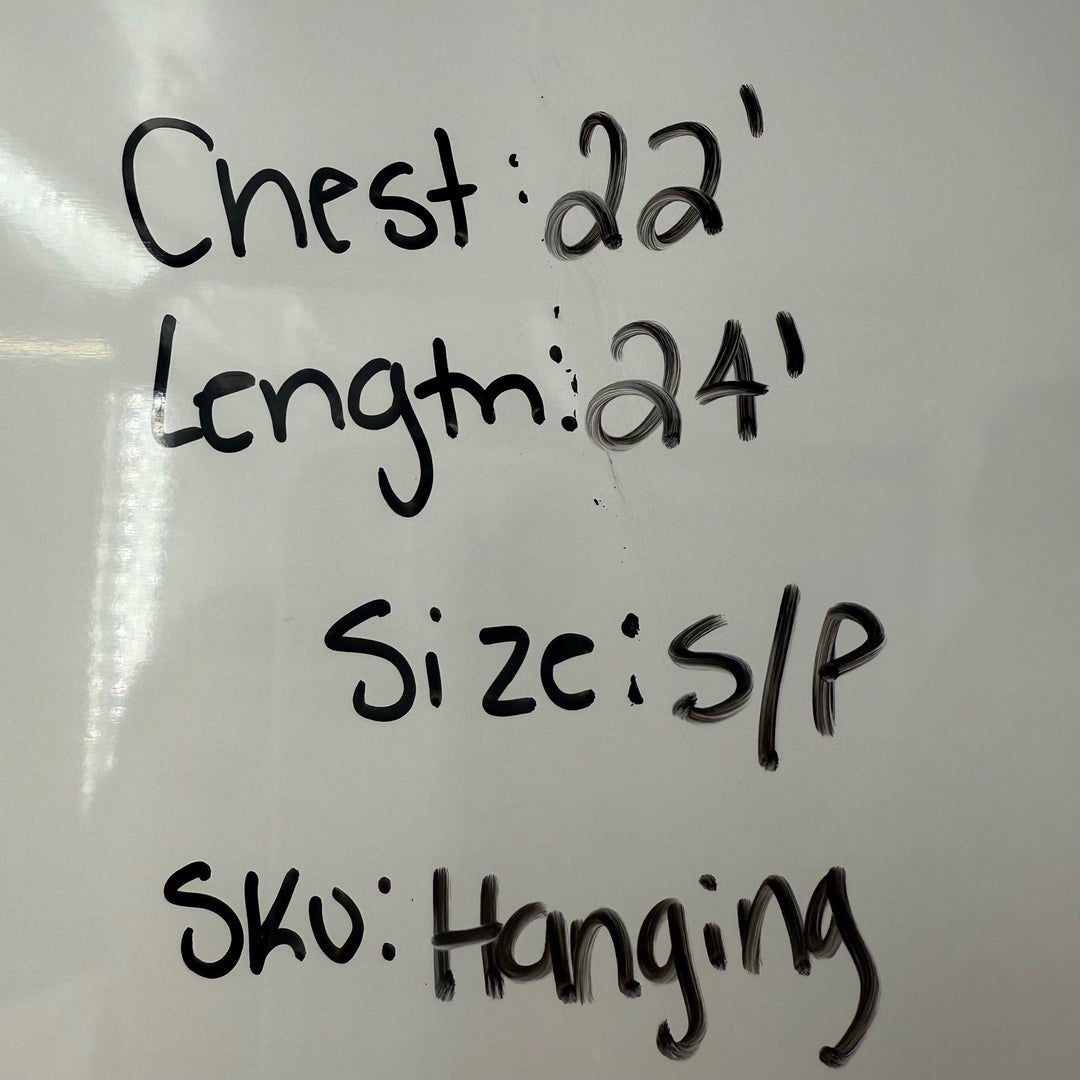 Chest: 22'
Length: 24'
Size: S/P
SKU: Hanging